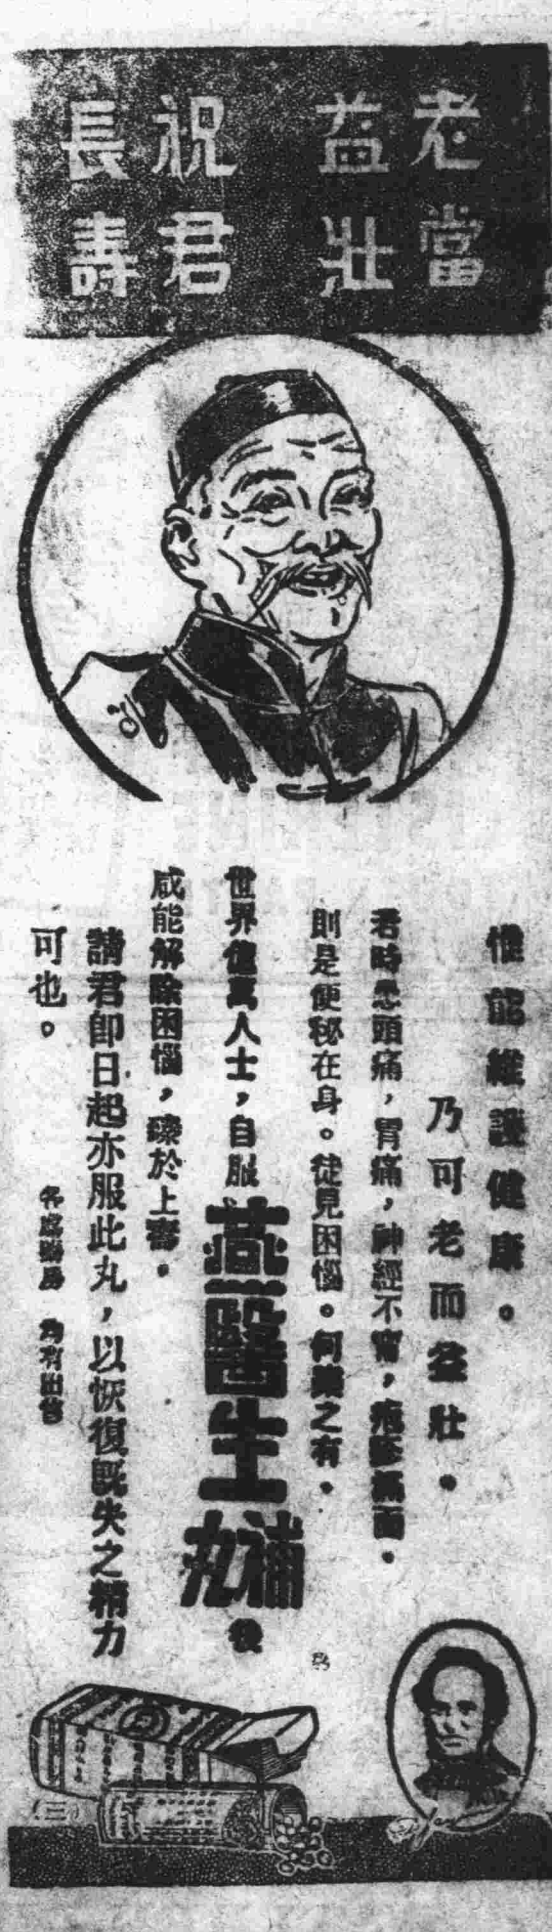 老當
益壯
祝君
長壽
惟能維護健康。
乃可老而益壯。
君時患頭痛,胃痛,神經不寧,疱疹滿面。
則是便秘在身。徒見困惱。何樂之有。
世界億萬人士,自服燕醫生補丸後
咸能解除困惱,臻於上壽。
請君卽日起亦服此丸,以恢復旣失之精力
可也。
各處藥房 均有出售
(三)